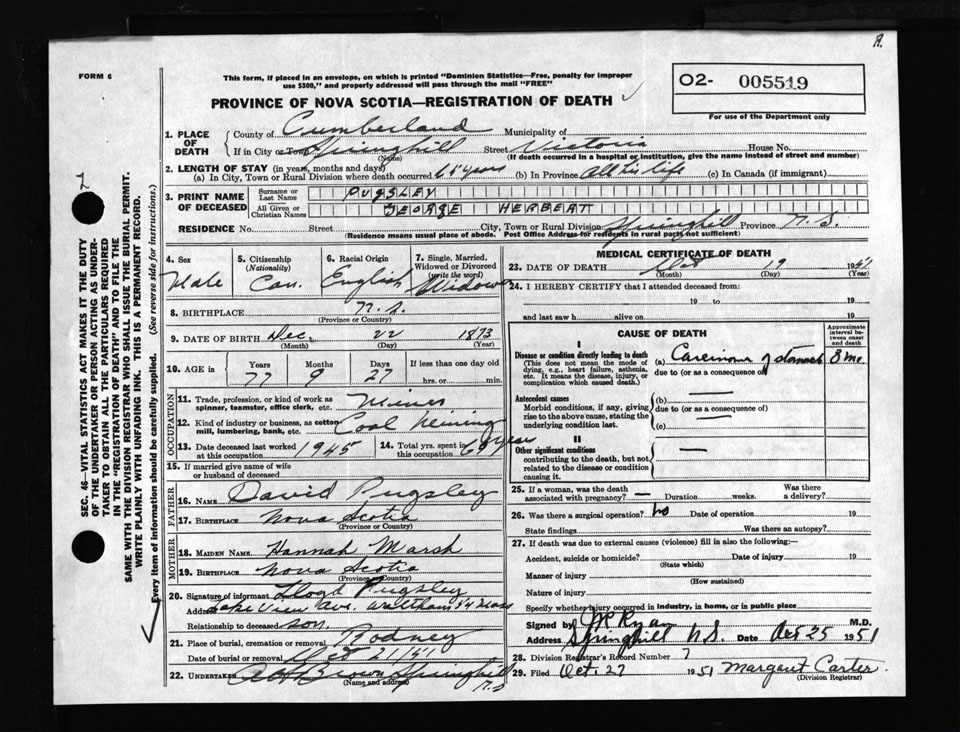 R.
FORM 6
This form, if placed in an envelope, on which is printed "Dominion Statistics—Free, penalty for improper
use $300," and properly addressed will pass through the mail "FREE"
PROVINCE OF NOVA SCOTIA—REGISTRATION OF DEATH
O2- 005519
For use of the Department only
1. PLACE OF DEATH
County of Cumberland Municipality of
If in City or Town Springhill Street Victoria House No.
(Name) (If death occurred in a hospital or institution, give the name instead of street and number)
2. LENGTH OF STAY (in years, months and days)
(a) In City, Town or Rural Division where death occurred 65 years (b) In Province All his life (c) In Canada (if immigrant)
3. PRINT NAME OF DECEASED
Surname or Last Name PUGSLEY
All Given or Christian Names GEORGE HERBERT
RESIDENCE No. Street City, Town or Rural Division Springhill Province N.S.
(Residence means usual place of abode. Post Office Address for residents in rural parts not sufficient)
4. Sex Male
5. Citizenship (Nationality) Can.
6. Racial Origin English
7. Single, Married, Widowed or Divorced (write the word) Widower
8. BIRTHPLACE N.S.
(Province or Country)
9. DATE OF BIRTH Dec. 22 1873
(Month) (Day) (Year)
10. AGE Years 77 Months 9 Days 27 If less than one day old
hrs. or min.
OCCUPATION
11. Trade, profession, or kind of work as spinner, teamster, office clerk, etc. Miner
12. Kind of industry or business, as cotton mill, lumbering, bank, etc. Coal Mining
13. Date deceased last worked at this occupation 1945
14. Total yrs. spent in this occupation years
15. If married give name of wife or husband of deceased
FATHER
16. NAME David Pugsley
17. BIRTHPLACE Nova Scotia
(Province or Country)
MOTHER
18. MAIDEN NAME Hannah Marsh
19. BIRTHPLACE Nova Scotia
(Province or Country)
20. Signature of informant Lloyd Pugsley
Address Lake View Ave. Waltham 54 Mass
Relationship to deceased son.
21. Place of burial, cremation or removal Rodney
Date of burial or removal Oct 21/51
22. UNDERTAKER Brown Springhill
(Name and address) N.S
MEDICAL CERTIFICATE OF DEATH
23. DATE OF DEATH Oct 19 1951
(Month) (Day) (Year)
24. I HEREBY CERTIFY that I attended deceased from:
19 to 19
and last saw h alive on 19
CAUSE OF DEATH
Approximate interval between onset and death
I
Disease or condition directly leading to death
(This does not mean the mode of dying, e.g., heart failure, asthenia, etc. It means the disease, injury, or complication which caused death.)
(a) Carcinoma of stomach 8 mo.
due to (or as a consequence of)
Antecedent causes
Morbid conditions, if any, giving rise to the above cause, stating the underlying condition last.
(b) —
due to (or as a consequence of)
(c) —
II
Other significant conditions
contributing to the death, but not related to the disease or condition causing it.
—
25. If a woman, was the death associated with pregnancy? — Duration weeks. Was there a delivery?
26. Was there a surgical operation? no Date of operation 19
State findings Was there an autopsy?
27. If death was due to external causes (violence) fill in also the following:—
Accident, suicide or homicide? Date of injury 19
(State which)
Manner of injury
(How sustained)
Nature of injury
Specify whether injury occurred in industry, in home, or in public place
Signed by Ryan M.D.
Address Springhill N.S. Date Oct 25 1951
28. Division Registrar's Record Number 7
29. Filed Oct. 27 1951 Margaret Carter.
(Division Registrar)
SEC. 46—VITAL STATISTICS ACT MAKES IT THE DUTY
OF THE UNDERTAKER OR PERSON ACTING AS UNDER-
TAKER TO OBTAIN ALL THE PARTICULARS REQUIRED
IN THE "REGISTRATION OF DEATH" AND TO FILE THE
SAME WITH THE DIVISION REGISTRAR WHO SHALL ISSUE THE BURIAL PERMIT.
WRITE PLAINLY WITH UNFADING INK. THIS IS A PERMANENT RECORD.
Every item of information should be carefully supplied. (See reverse side for instructions.)